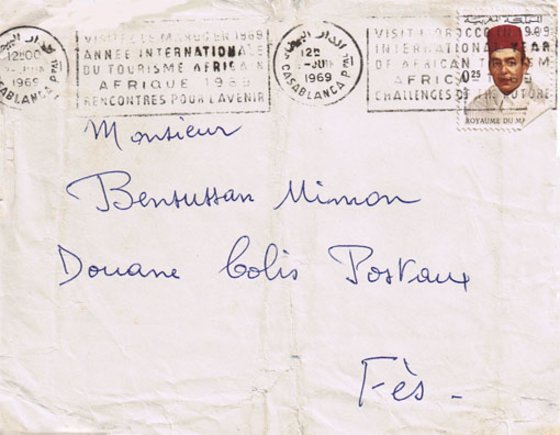 VISITEZ LE MAROC EN 1969
ANNEE INTERNATIONALE
DU TOURISME AFRICAIN
AFRIQUE
RENCONTRES POUR L'AVENIR
1969
CASABLANCA Ppal
الدار البيضاء
12H00
JUIN
1969
CASABLANCA Ppal
VISIT MOROCCO IN 1969
INTERNATIONAL YEAR
OF AFRICAN TOURISM
AFRICA
CHALLENGES OF THE FUTURE
المملكة المغربية
0.25
ROYAUME DU
Monsieur
Bensussan Mimon
Douane Colis Postaux
Fès -